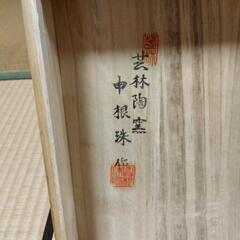 芸林陶窯
申根珠作